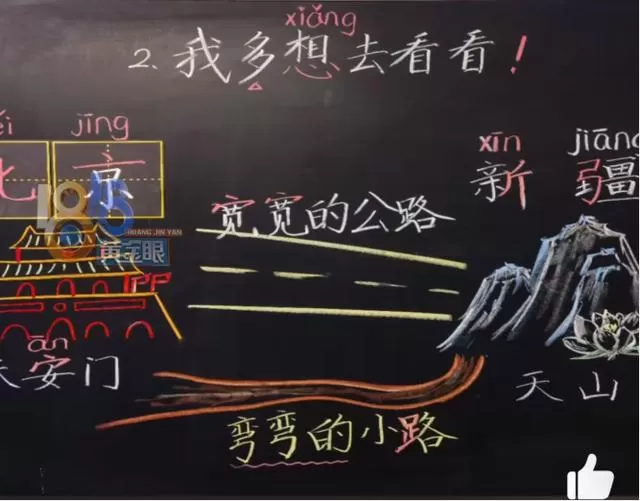 xiǎng
2. 我多想去看看！
jīng
北京
xīn jiāng
新疆
宽宽的公路
1818
HUANG JIN YAN
黄金眼
APP
ān
天安门
天山
弯弯的小路